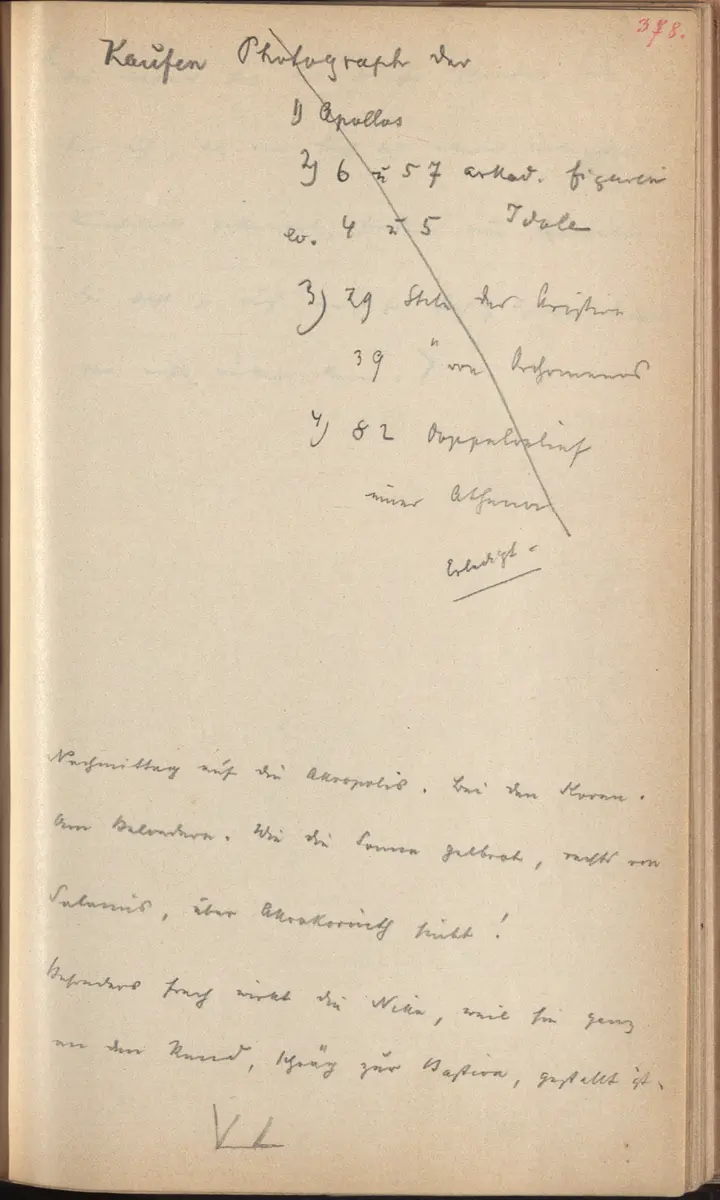 378.
Kaufen Photograph der
1) Apollos
2) 6 u 57 arkad. Figuren
ev. 4 u 5 Idole
3) 29 Stele des Aristion
39 " von Orchomenos
4) 82 Doppelrelief
einer Athena
Erledigt
Nachmittag auf die Akropolis. Bei den Koren.
Am Belvedere. Wie die Sonne gelbrot, rechts von
Salamis, über Akrokorinth sinkt!
Besonders frech wirkt die Nike, weil sie ganz
an den Rand, schräg zur Bastion, gestellt ist.